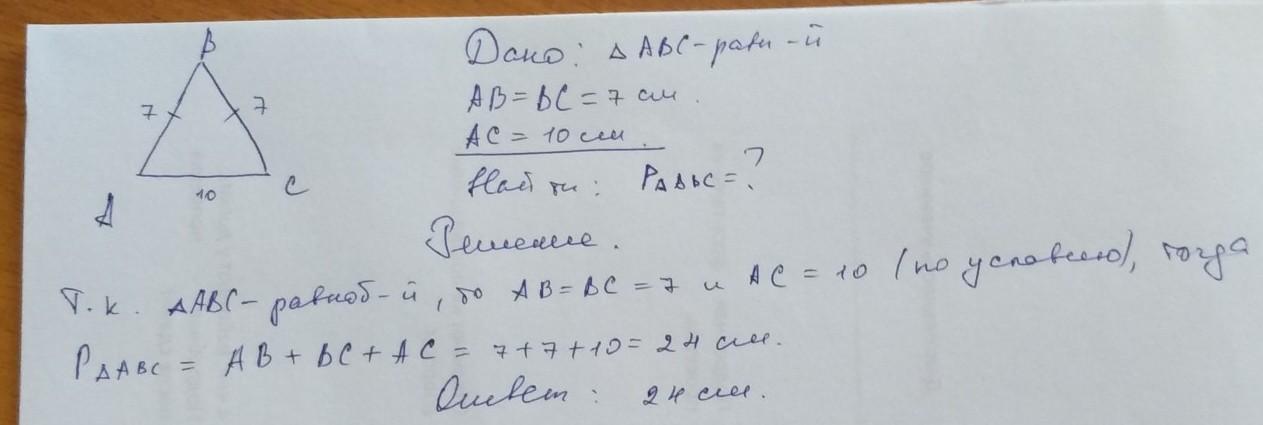 B
7 7
A 10 C
Дано: △ABC-равн-й
AB=BC=7 см.
AC=10 см.
Найти: P△ABC=?
Решение.
Т.к. △ABC-равноб-й, то AB=BC=7 и AC=10 (по условию), тогда
P△ABC = AB+BC+AC = 7+7+10=24 см.
Ответ: 24 см.